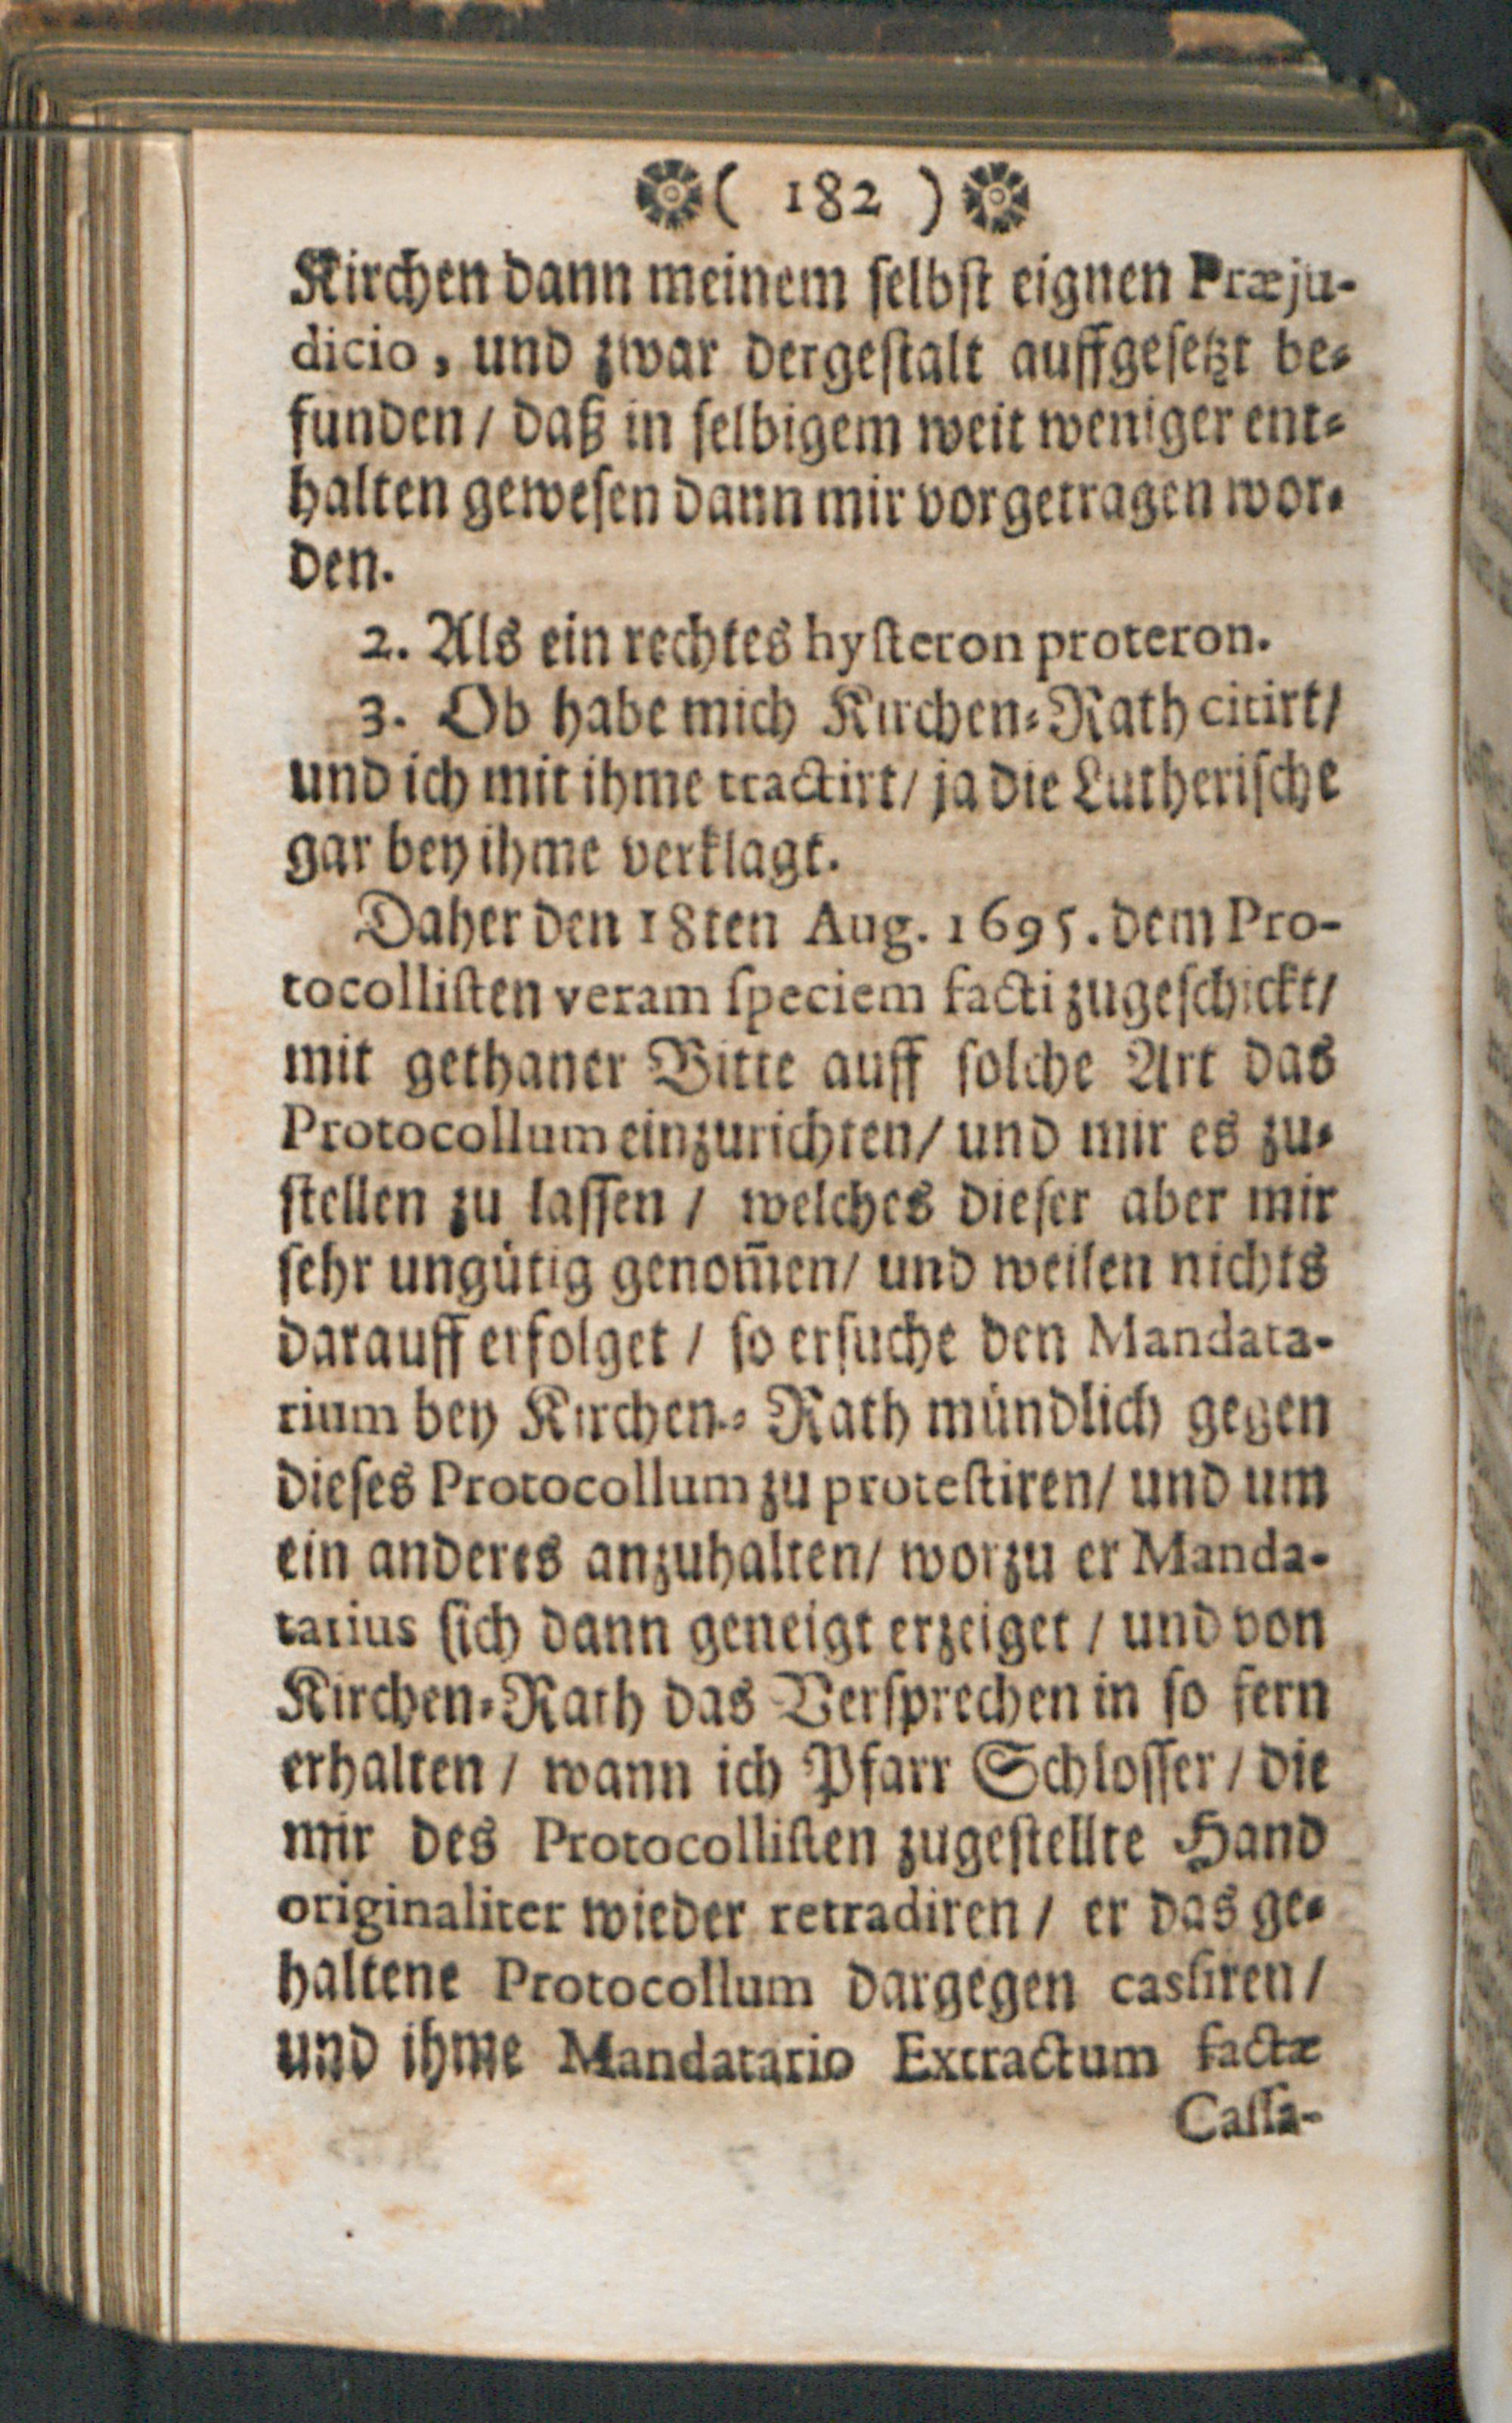 ( 182 )
Kirchen dann meinem ſelbſt eignen Præju-
dicio, und zwar dergeſtalt auffgeſetzt be-
funden / daß in ſelbigem weit weniger ent-
halten geweſen dann mir vorgetragen wor-
den.
2. Als ein rechtes hyſteron proteron.
3. Ob habe mich Kirchen-Rath citirt /
und ich mit ihme tractirt / ja die Lutheriſche
gar bey ihme verklagt.
Daher den 18ten Aug. 1695. dem Pro-
tocolliſten veram ſpeciem facti zugeſchickt /
mit gethaner Bitte auff ſolche Art das
Protocollum einzurichten / und mir es zu-
ſtellen zu laſſen / welches dieſer aber mir
ſehr ungütig genom̄en / und weilen nichts
darauff erfolget / ſo erſuche den Mandata-
rium bey Kirchen-Rath mündlich gegen
dieſes Protocollum zu proteſtiren / und um
ein anderes anzuhalten / worzu er Manda-
tarius ſich dann geneigt erzeiget / und von
Kirchen-Rath das Verſprechen in ſo fern
erhalten / wann ich Pfarr Schloſſer / die
mir des Protocolliſten zugeſtellte Hand
originaliter wieder retradiren / er das ge-
haltene Protocollum dargegen casſiren /
und ihme Mandatario Extractum factæ
Caſſa-